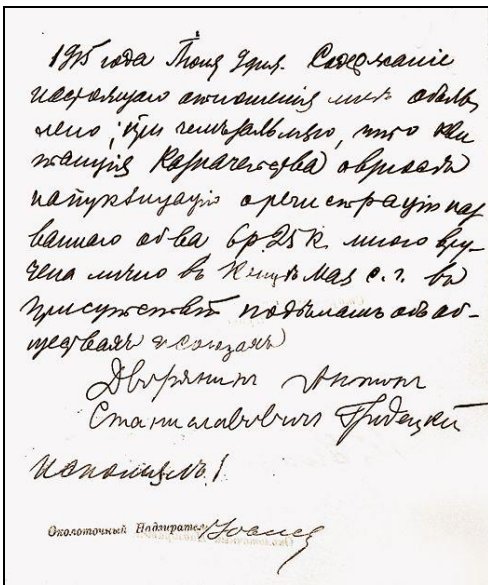 1915 года Июня 9 дня. Содержаніе
настоящаго отношенія мнѣ объяв
лено, при чемъ заявляю, что кви
танція Казначейства о взносѣ
на публикацію о регистраціи наз
ваннаго об-ва 6 р. 25 к. мною вру
чена лично въ концѣ Мая с. г. въ
присутствіи по дѣламъ объ об-
ществахъ и союзахъ
Дворянинъ Антонъ
Станиславовичъ Гридецкій
Исполнилъ!
Околоточный Надзиратель